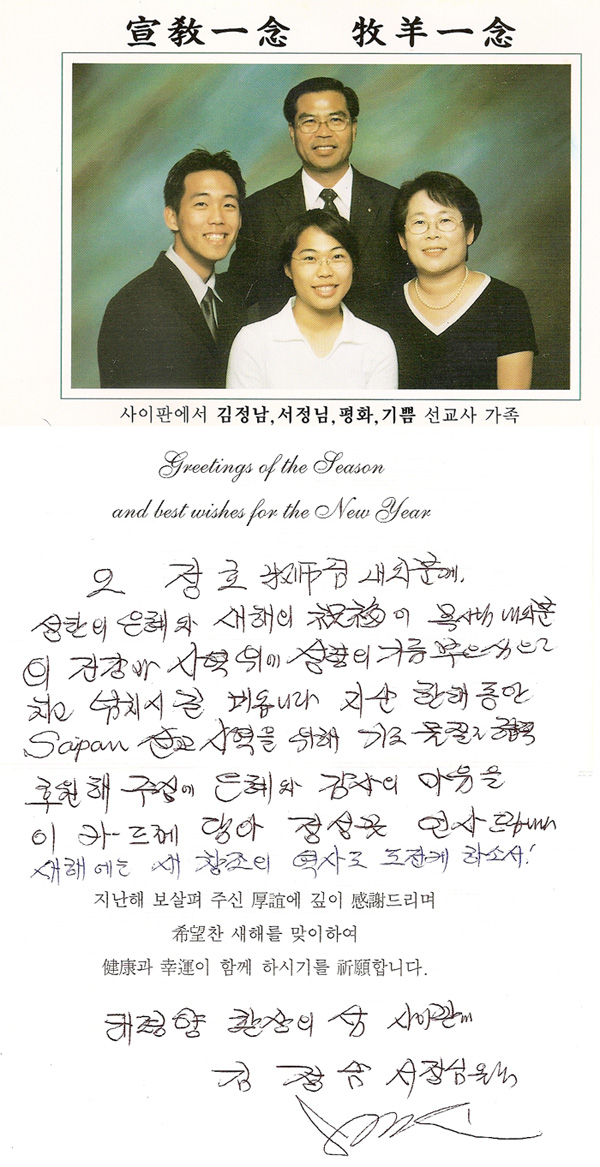 宣敎一念 牧羊一念
사이판에서 김정남,서정님,평화,기쁨 선교사 가족
Greetings of the Season
and best wishes for the New Year
오 장 호 牧師님 내외분께.
성탄의 은혜와 새해의 祝福이 목사님 내외분
의 건강과 사역 위에
치고 넘치시길 지난 한해 동안
Saipan 선교 사역을 위해 기도 물질로
후원해 주심에 은혜와 감사의 마음을
이 카-드에 담아 정성껏 인사드립니다
새해에는 새 창조의 역사로 도전케 하소서!
지난해 보살펴 주신 厚誼에 깊이 感謝드리며
希望찬 새해를 맞이하여
健康과 幸運이 함께 하시기를 祈願합니다.
태평양 환상의 섬 사이판에서
김 정 남 서정님